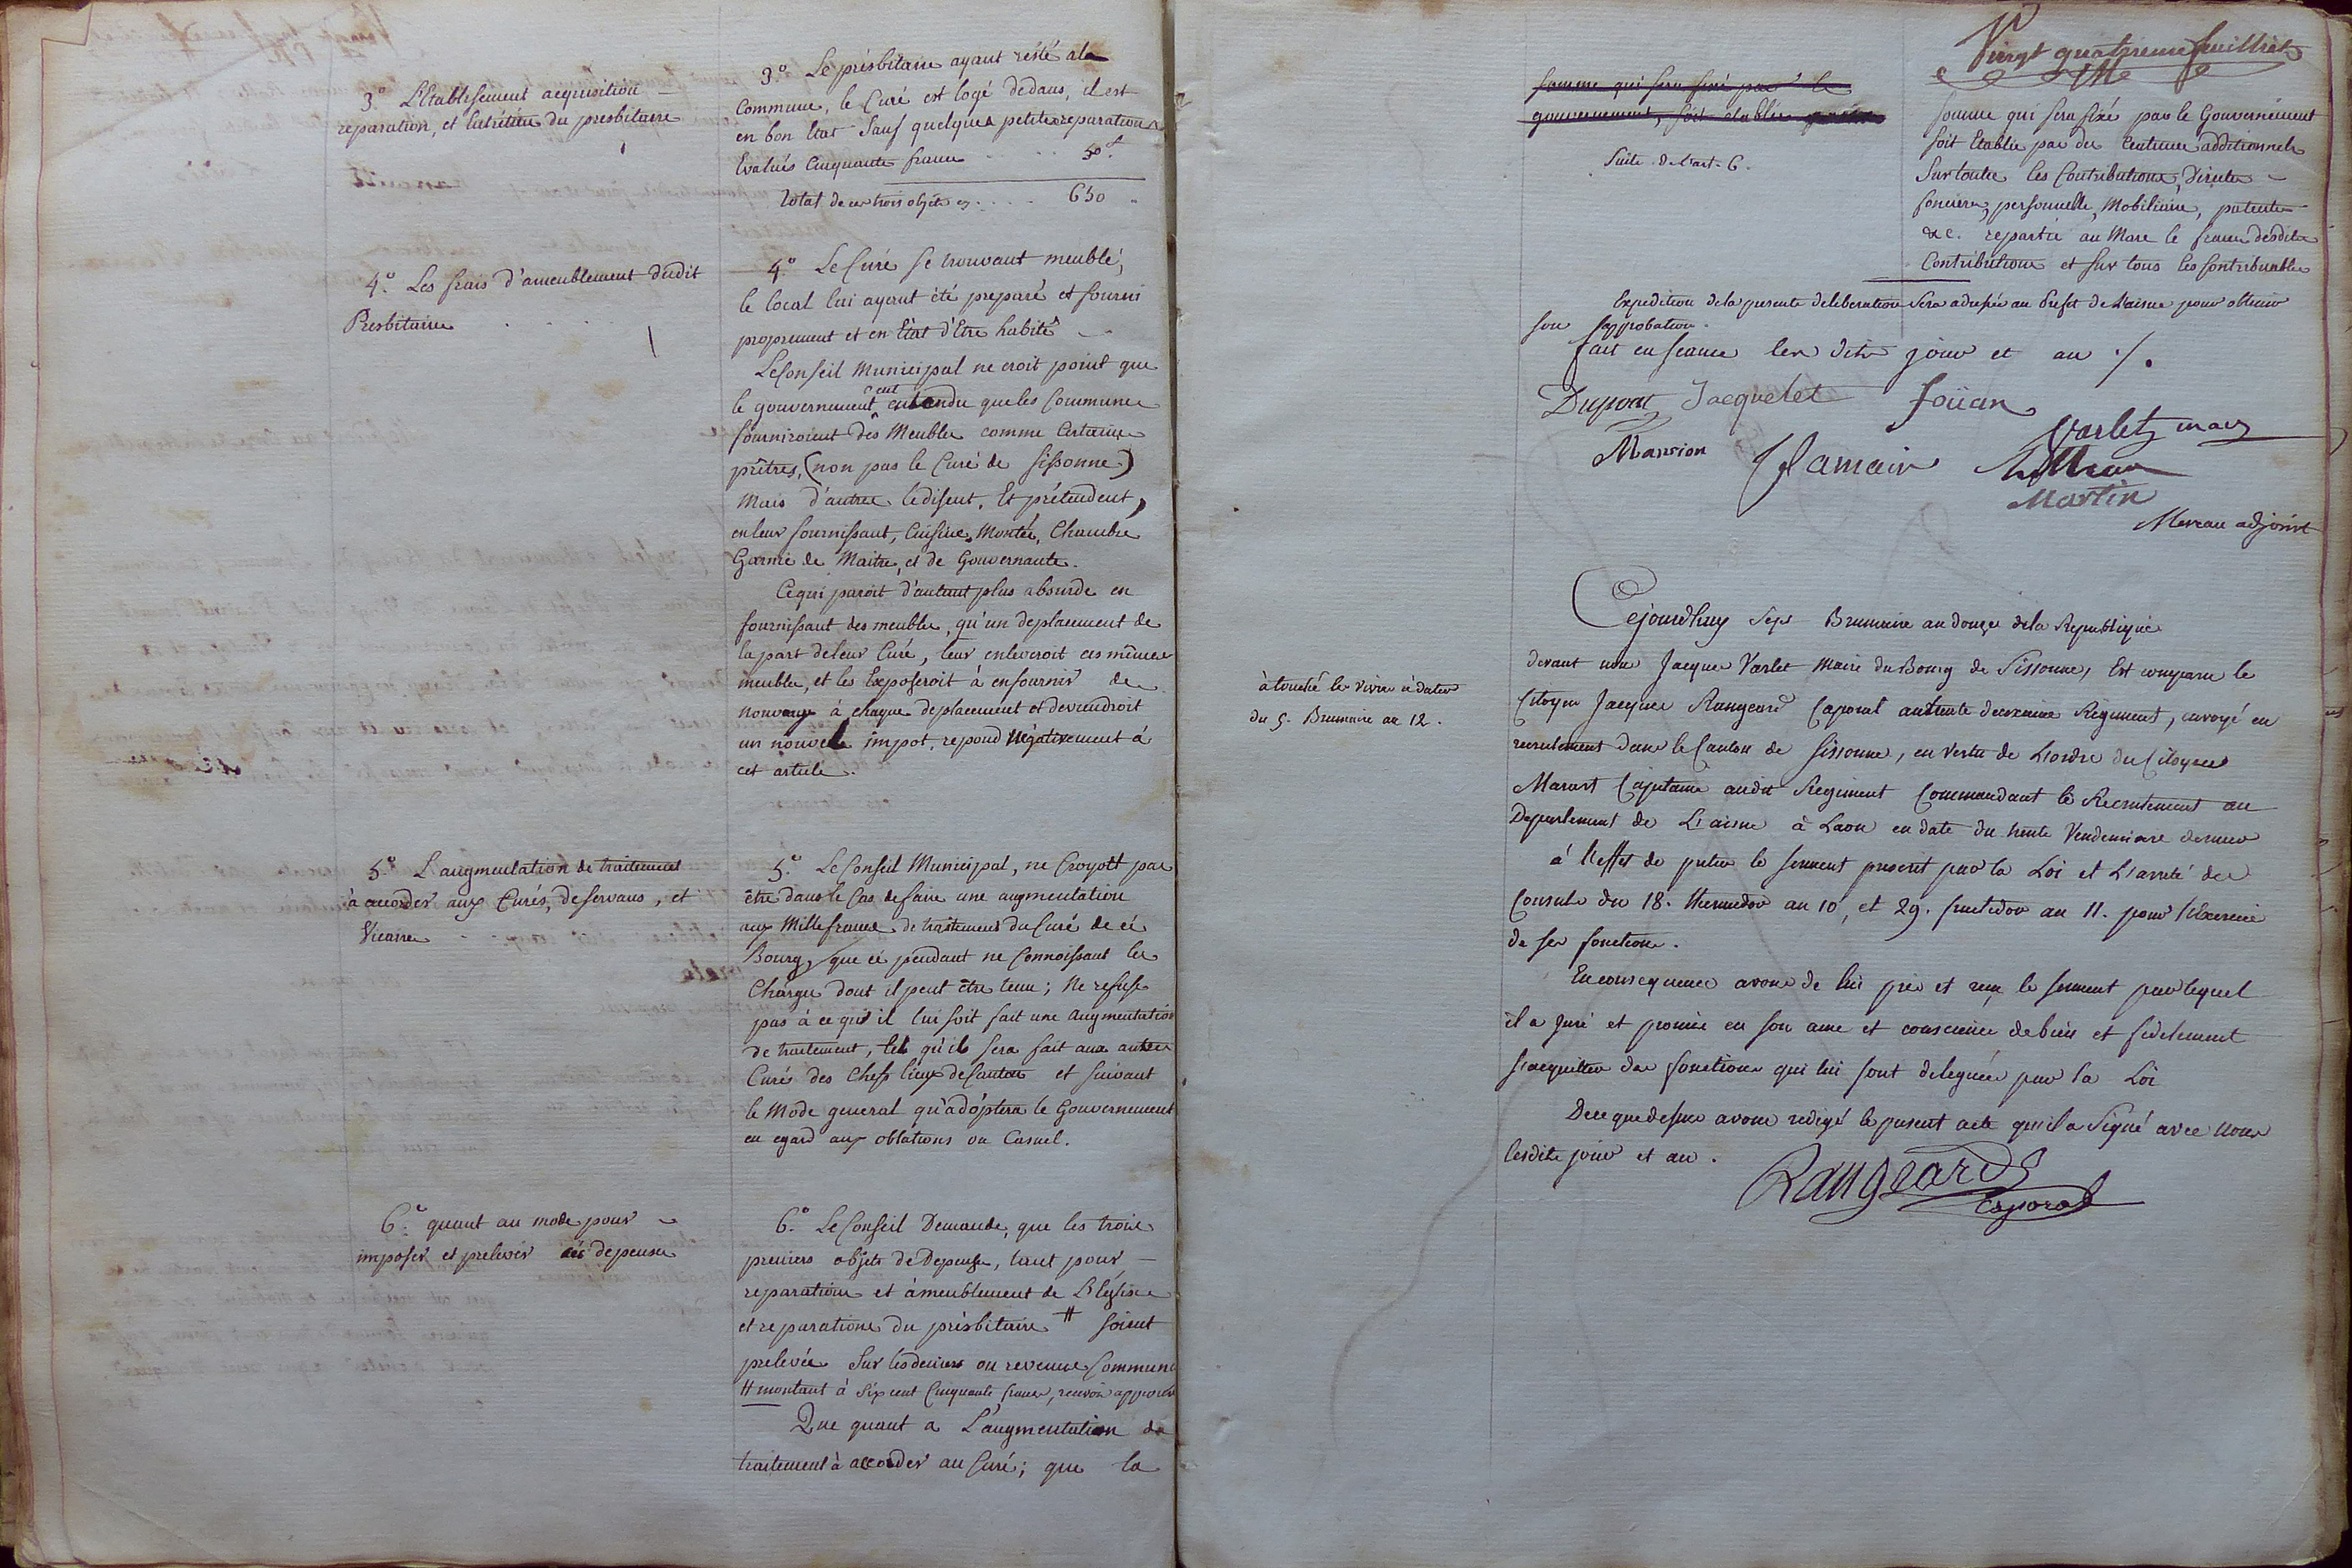 3.° L'Etablissement acquisition
reparation, et Entretien du presbitaire
3.° Le presbitaire ayant resté a la
Commune, le Curé est logé dedans, il est
en bon Etat Sauf quelques petites reparations
Evalués Cinquante francs 50
Total de ces trois objets 650
4.° Les frais d'ameublement dudit
Presbitaire
4.° Le Curé se trouvant meublé,
le local lui ayant été preparé et fourni
proprement et en Etat d'Etre habité
Le Conseil Municipal ne croit point que
le gouvernement eut entendu que les Communes
fourniroient des Meubles comme Certains
prêtres, (non pas le Curé de Sissonne)
Mais d'autres le disent, Et prétendent,
en leur fournissant, Cuisine Montée, Chambre
Garnie de Maitre, et de Gouvernante.
Ce qui paroit d'autant plus absurde en
fournissant des meubles, qu'un deplacement de
la part de leur Curé, leur enleveroit ces mêmes
meubles, et les Exposeroit à en fournir de
nouveaux à chaque deplacement et deviendroit
un nouvel impot, repond négativement à
cet article.
5.° L'augmentation de traitement
à accorder aux Curés, deservans, et
Vicaires
5.° Le Conseil Municipal, ne Croyoit pas
être dans le Cas de faire une augmentation
aux Mille francs de traitement du Curé de ce
Bourg, que ce pendant ne Connoissant les
Charges dont il peut être tenu; Ne refuse
pas à ce qu'il lui soit fait une Augmentation
de traitement, tel qu'il sera fait aux autres
Curés des Chefs lieux de Canton et suivant
le Mode general qu'adoptera le Gouvernement
eu egard aux oblations ou Casuel.
6.° quant au mode pour
imposer et prelever ces depenses
6.° Le Conseil Demande, que les trois
premiers objets de Depense, tant pour
reparations et ameublement de L'église
et reparations du presbitaire # soient
prelevés Sur les deniers ou revenus Communs
# montant à Six cent Cinquante francs, renvoi approuvé
Que quant a L'augmentation de
traitement à accorder au Curé; que la
Vingt quatrieme feuillet
somme qui sera fixé par le
gouvernement, soit établie
Suite de l'art. 6.
somme qui sera fixé par le Gouvernement
soit Etablie par des Centimes additionnels
Sur toutes les Contributions Directes
foncieres, personnelle, Mobiliaire, patentes
&c. repartie au Marc le franc desdites
Contributions et sur tous les Contribuables
Expedition de la presente deliberation sera adressée au Prefet de l'aisne pour obtenir
son approbation.
fait en seance les dits jour et an ./.
Dupont Jacquelet Joüan
Varlet maire
Marrion Hamain
Martin
Mereau adjoint
Cejourdhuy Sept Brumaire an douze de la Republique
devant nous Jacques Varlet Maire du Bourg de Sissonne, Est comparu le
Citoyen Jacques Rangeard Caporal au trente deuxieme Regiment, envoyé en
recrutement dans le Canton de Sissonne, en vertu de L'ordre du Citoyen
Marast Capitaine audit Regiment Commandant le Recrutement au
Departement de L'aisne à Laon en date du trente Vendemiaire dernier
à l'effet de preter le serment prescrit par la Loi et L'arreté des
Consuls du 18. thermidor an 10, et 29. fructidor an 11. pour l'Exercice
de ses fonctions.
à touché les vivres à dater
du 5. Brumaire an 12.
En consequence avons de lui pris et reçu le serment par lequel
il a Juré et promis en son ame et conscience de bien et fidelement
s'acquitter des fonctions qui lui sont deleguées par la Loi
De ce que dessus avons redigé le present acte qu'il a Signé avec nous
lesdits jour et an.
Rangeard
Caporal